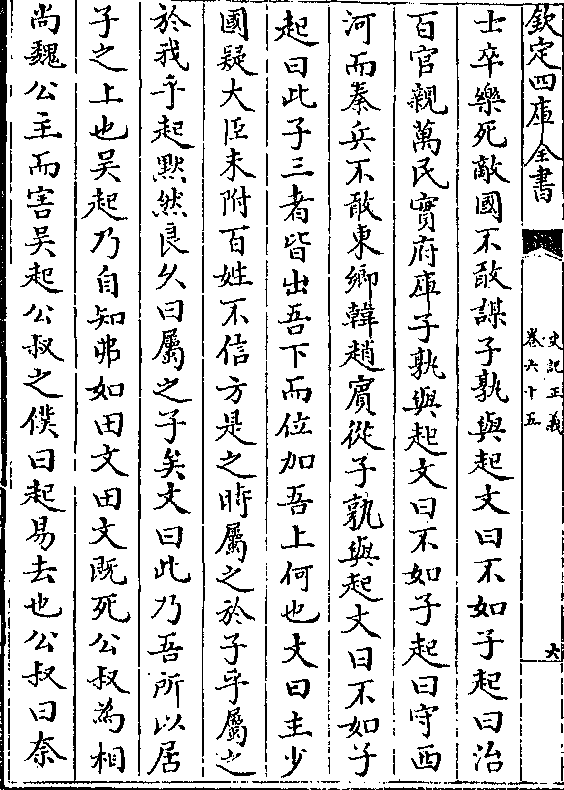 欽定四庫全書
史記正義
卷六十五
六
士卒樂死敵國不敢謀子孰與起文曰不如子起曰治
百官親萬民實府庫子孰與起文曰不如子起曰守西
河而秦兵不敢東鄉韓趙賓從子孰與起文曰不如子
起曰此子三者皆出吾下而位加吾上何也文曰主少
國疑大臣未附百姓不信方是之時屬之於子乎屬之
於我乎起黙然良久曰屬之子矣文曰此乃吾所以居
子之上也吴起乃自知弗如田文田文既死公叔為相
尚魏公主而害吴起公叔之僕曰起易去也公叔曰奈